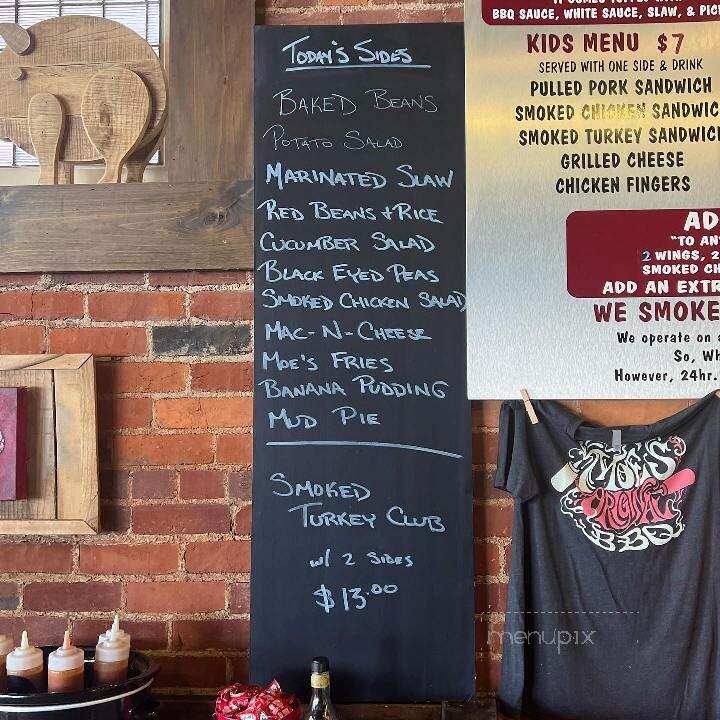 TODAY'S SIDES
BAKED BEANS
POTATO SALAD
MARINATED SLAW
RED BEANS + RICE
CUCUMBER SALAD
BLACK EYED PEAS
SMOKED CHICKEN SALAD
MAC-N-CHEESE
MOE'S FRIES
BANANA PUDDING
MUD PIE
SMOKED
TURKEY CLUB
w/ 2 SIDES
$13.00
BBQ SAUCE, WHITE SAUCE, SLAW, &
KIDS MENU $7
SERVED WITH ONE SIDE & DRINK
PULLED PORK SANDWICH
SMOKED CHICKEN SANDWIC
SMOKED TURKEY SANDWICH
GRILLED CHEESE
CHICKEN FINGERS
AD
"TO AN
2 WINGS, 2
SMOKED CH
ADD AN EXTR
WE SMOKE
We operate on a
So, Wh
However, 24hr.
MOE'S
ORIGINAL
BBQ
menupix